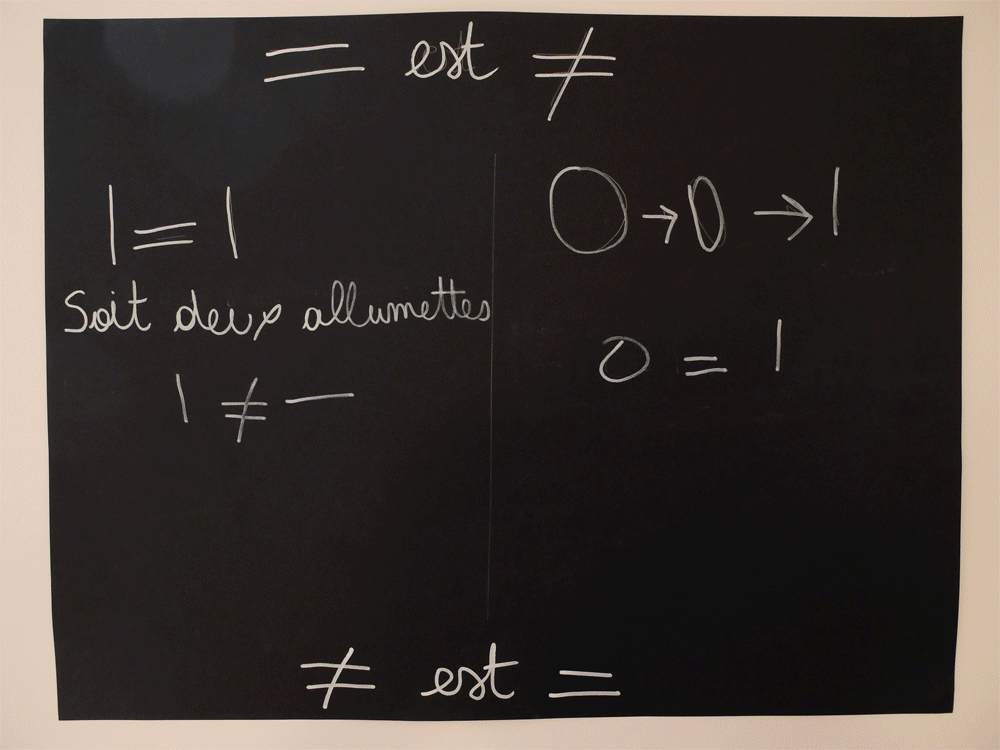 = est ≠
1 = 1
Soit deux allumettes
| ≠ —
0 → 0 → 1
0 = 1
≠ est =